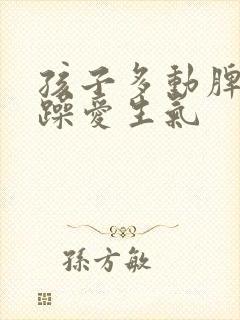 孩子多動脾
躁愛生氣
孫方敏